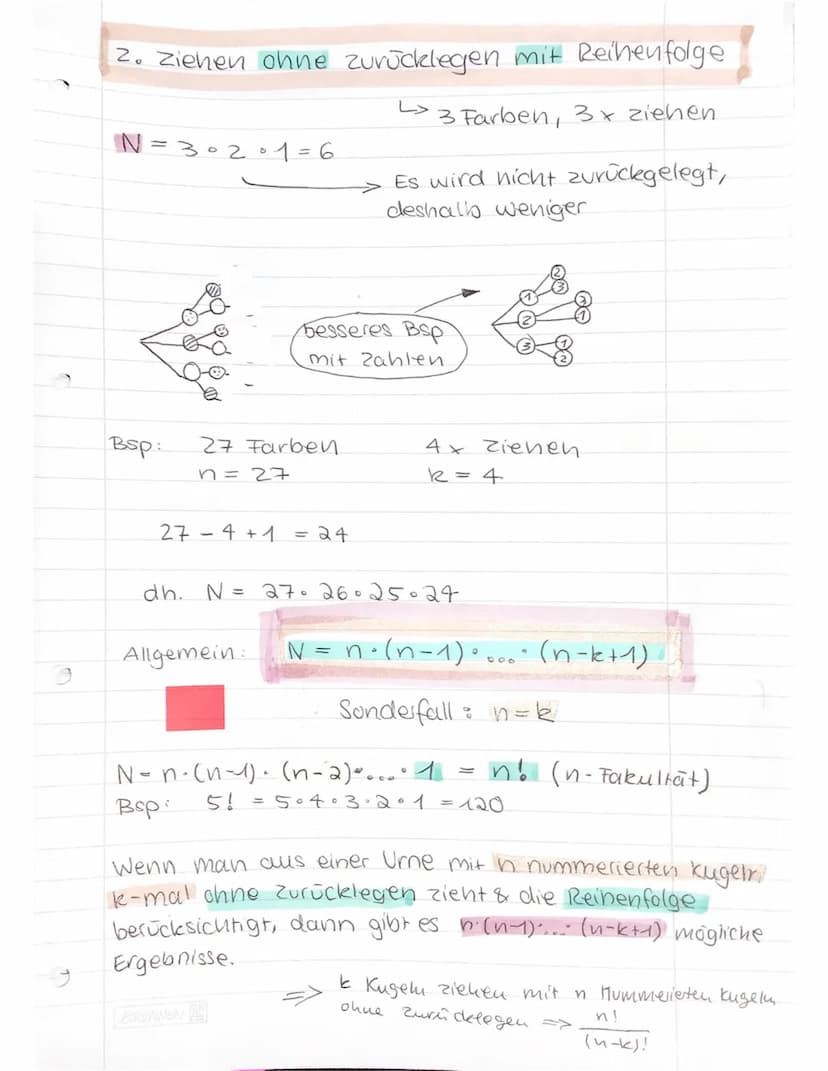 2. Ziehen ohne zurücklegen mit Reihenfolge
↳ 3 Farben, 3x ziehen
N = 3 · 2 · 1 = 6
→ Es wird nicht zurückgelegt,
deshalb weniger
besseres Bsp
mit Zahlen
1 2 3
2 3 1
3 1 2
Bsp: 27 Farben 4x Ziehen
n = 27 k = 4
27 - 4 + 1 = 24
dh. N = 27 · 26 · 25 · 24
Allgemein: N = n · (n-1) · ... · (n-k+1)
Sonderfall: n = k
N = n · (n-1) · (n-2) · ... · 1 = n! (n-Fakultät)
Bsp: 5! = 5 · 4 · 3 · 2 · 1 = 120
Wenn man aus einer Urne mit n nummerierten Kugeln
k-mal ohne Zurücklegen zieht & die Reihenfolge
berücksichtigt, dann gibt es n·(n-1)·...·(n-k+1) mögliche
Ergebnisse.
=> k Kugeln ziehen mit n Nummerierten Kugeln
ohne zurücklegen => n!/(n-k)!
BRUNNEN